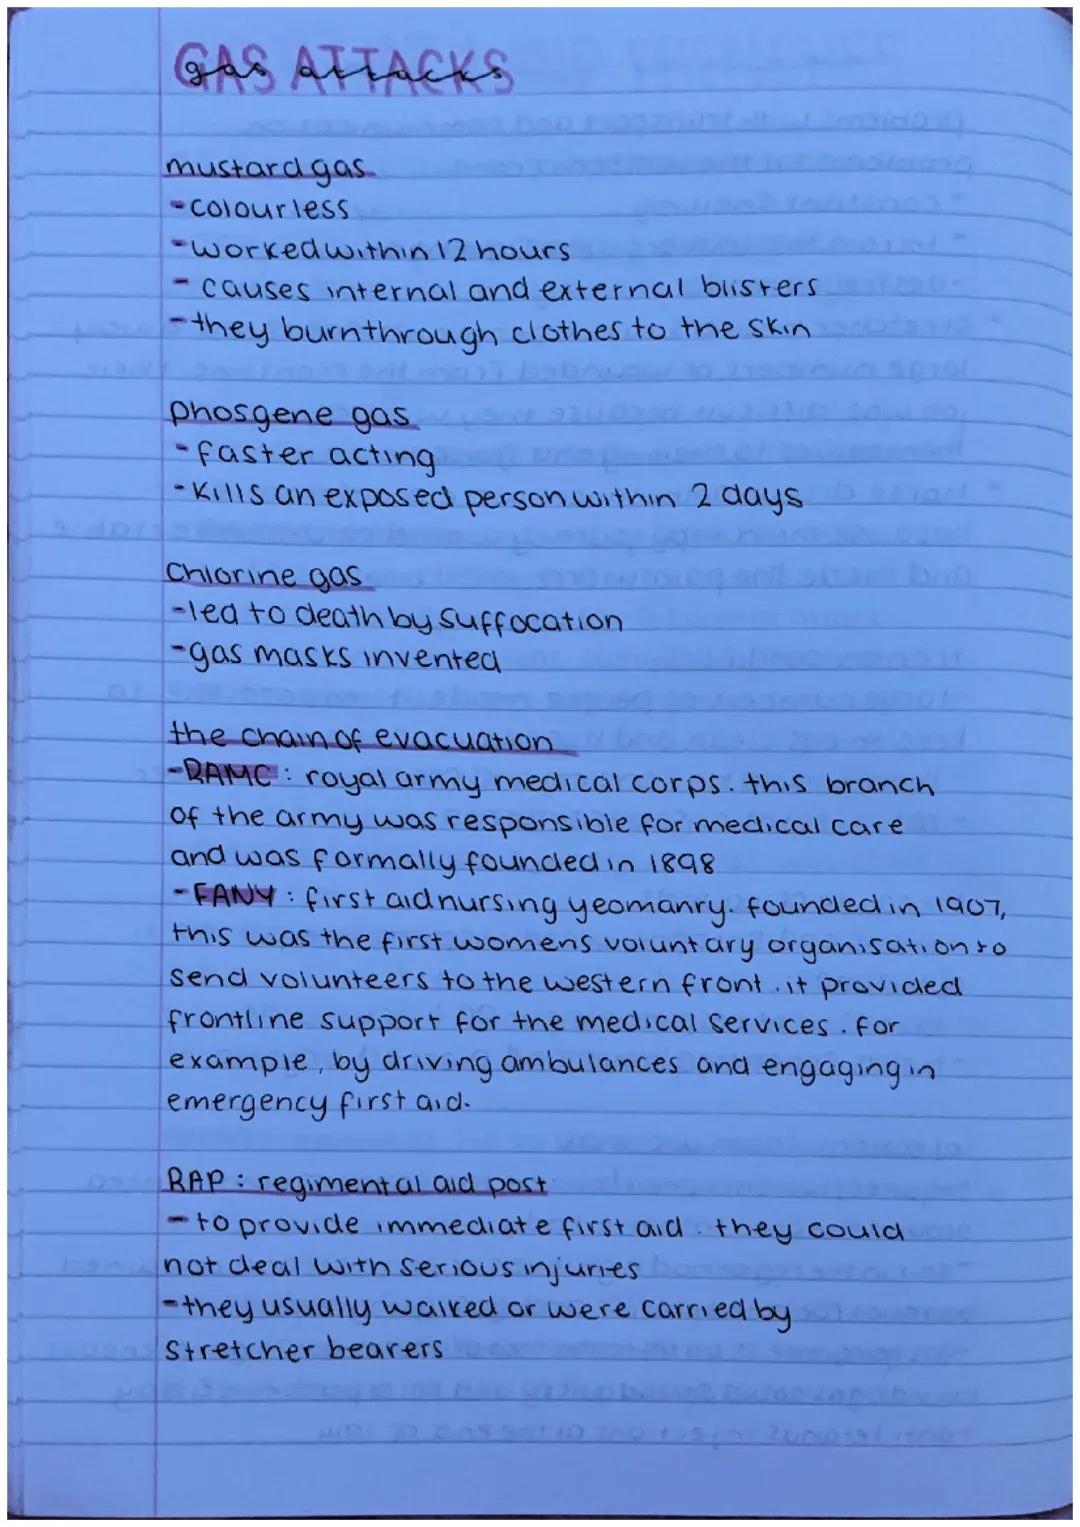 GAS ATTACKS
gas attacks
mustard gas
-colourless
-worked within 12 hours
- causes internal and external blisters
-they burn through clothes to the skin
phosgene gas
-faster acting
-kills an exposed person within 2 days
Chlorine gas
-led to death by suffocation
-gas masks invented
the chain of evacuation
-RAMC: royal army medical corps. this branch
of the army was responsible for medical care
and was formally founded in 1898
-FANY: first aid nursing yeomanry. founded in 1907,
this was the first womens voluntary organisation to
send volunteers to the western front. it provided
frontline support for the medical services. for
example, by driving ambulances and engaging in
emergency first aid.
RAP: regimental aid post
-to provide immediate first aid. they could
not deal with serious injuries
-they usually walked or were carried by
stretcher bearers